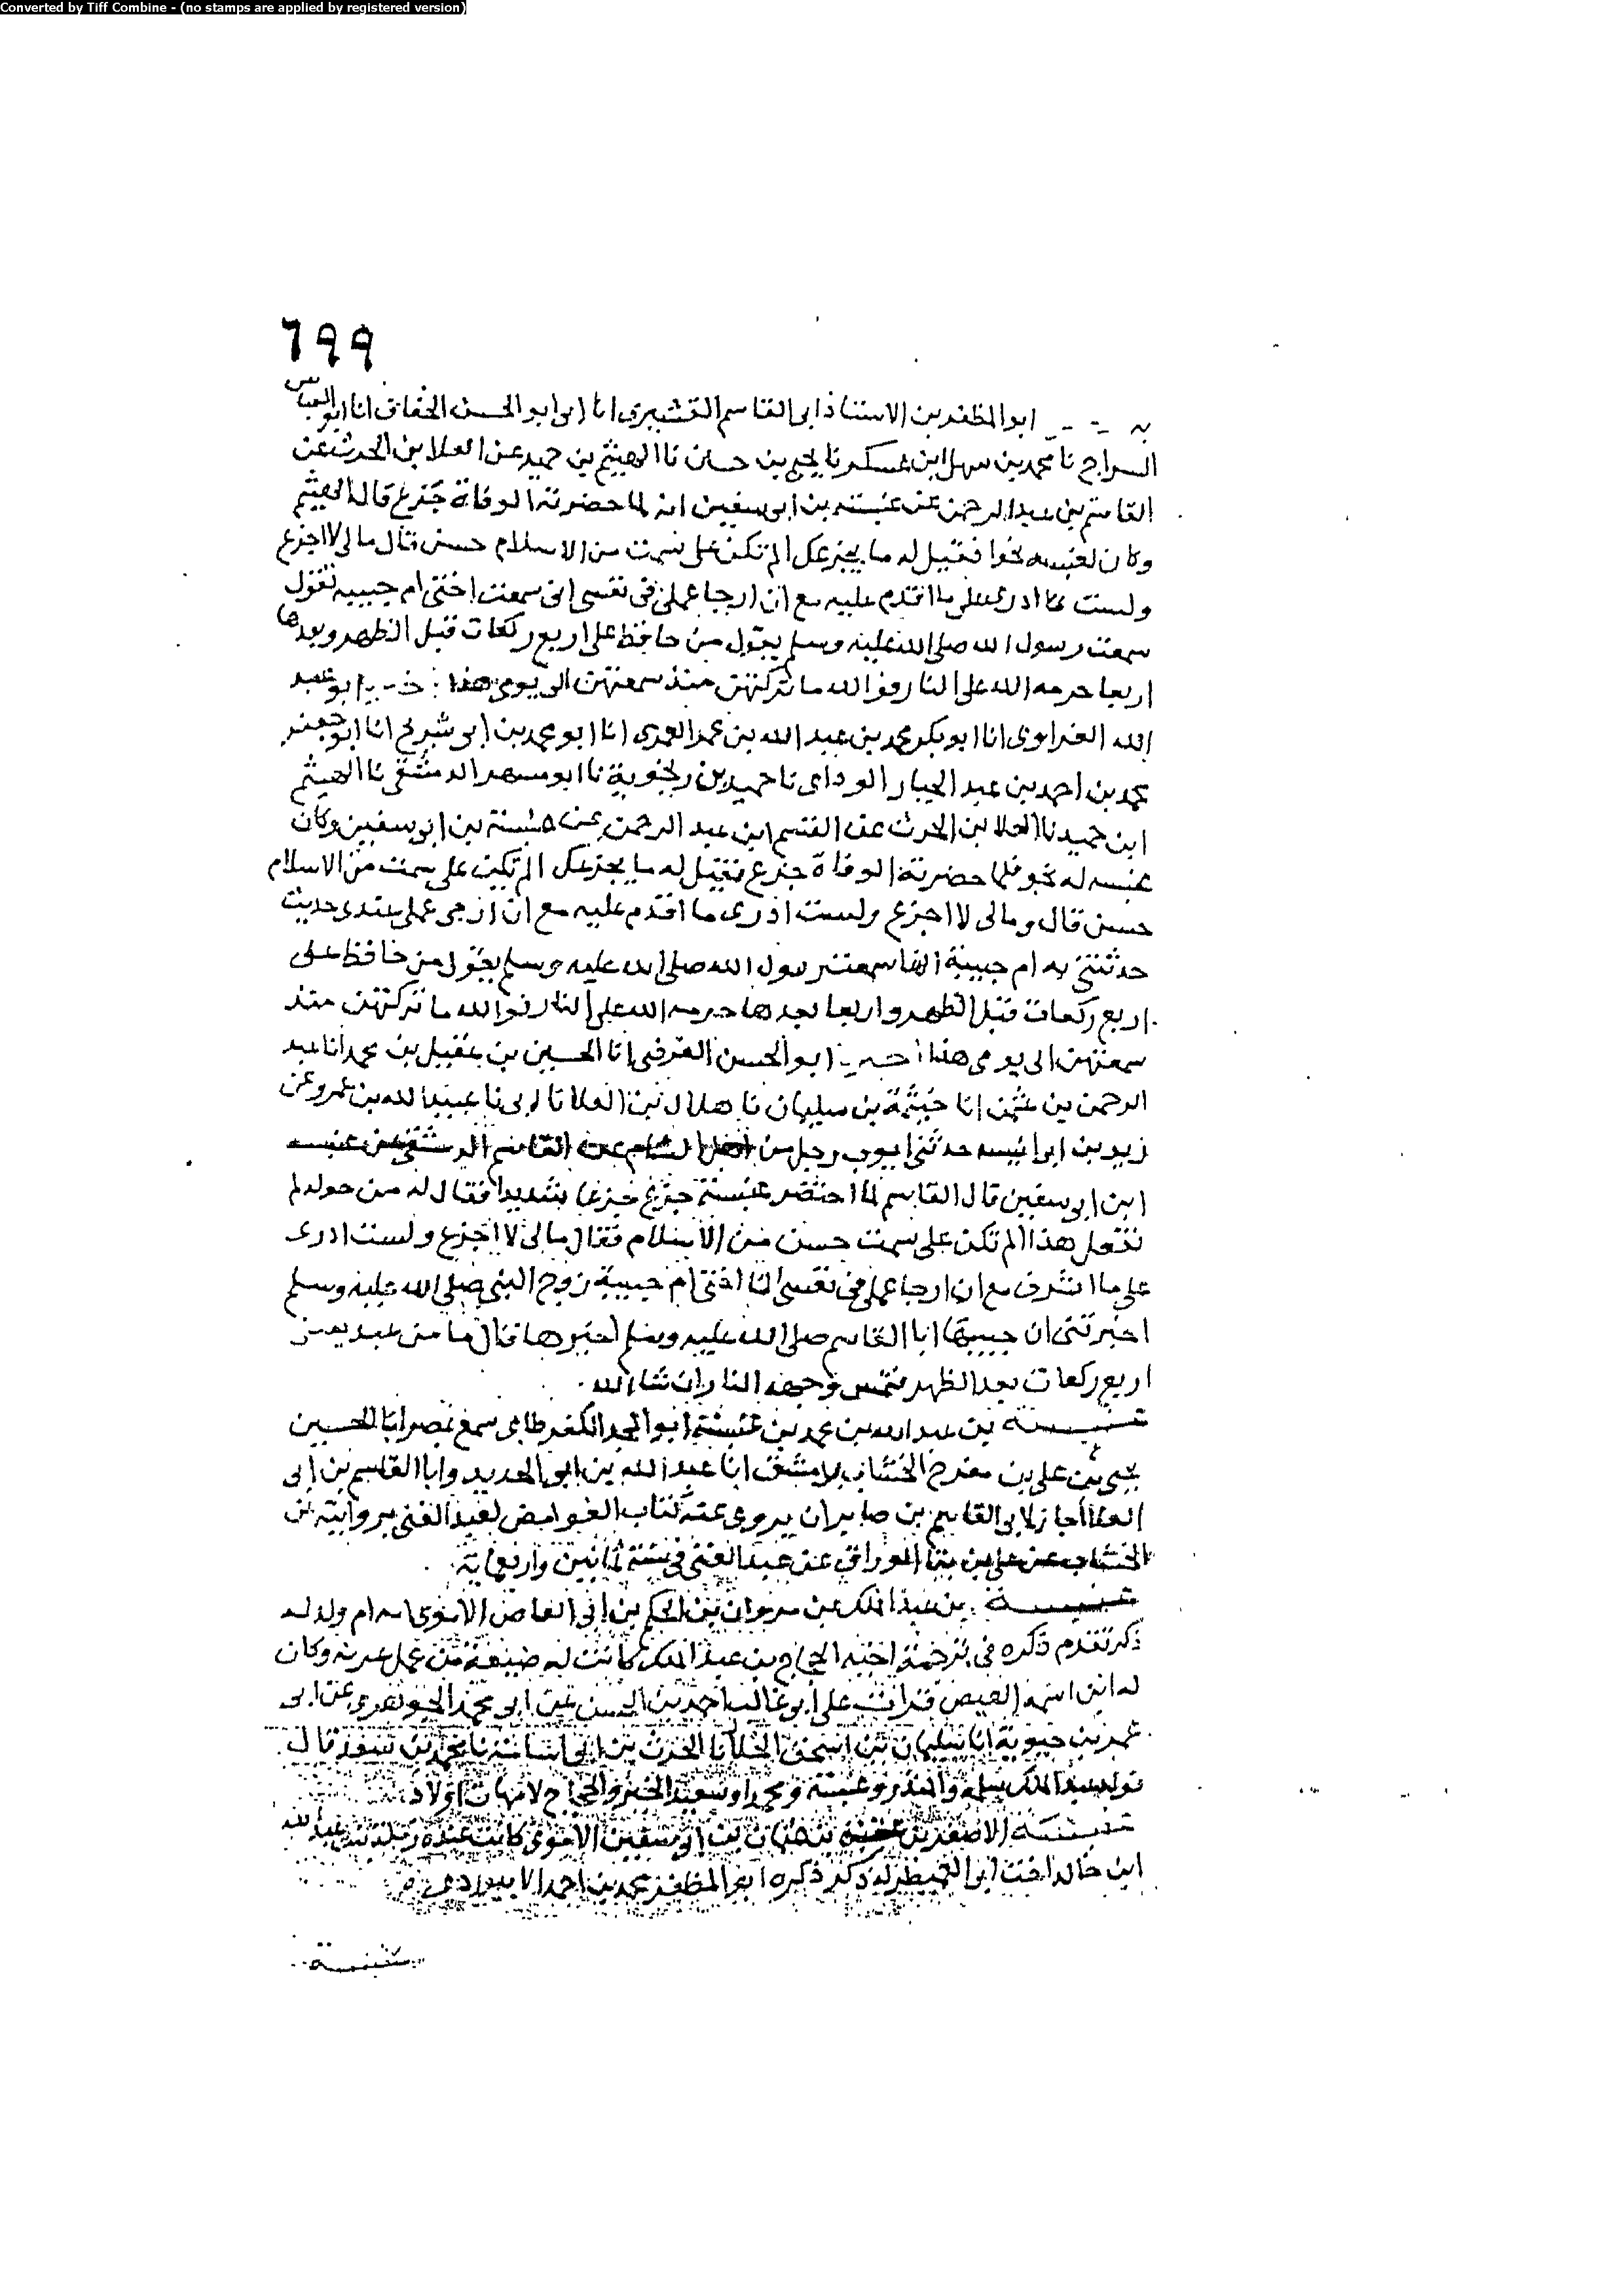 Converted by Tiff Combine - (no stamps are applied by registered version)
٦٩٩
ابو المظفر بن الاستاذ ابى القاسم القشيرى انا ابى ابو الحسن الخفاف انا ابو العباس
السراج نا محمد بن سهل ابن عسكر نا يحيى بن حسان نا الهيثم بن حميد عن العلا بن الحرث عن
القاسم بن عبد الرحمن عن عنبسة بن ابى سفين انه لما حضرته الوفاة جزع قال الهيثم
وكان لعنبسه نحوا فقيل له ما يجزعك الم تكن على سمت من الاسلام حسن قال مالى لا اجزع
ولست ادرى على ما اقدم عليه مع ان ارجا عملى فى نفسى انى سمعت اختى ام حبيبه تقول
سمعت رسول الله صلى الله عليه وسلم يقول من حافظ على اربع ركعات قبل الظهر وبعدها
اربعا حرمه الله على النار فوالله ما تركتهن منذ سمعتهن الى يومى هذا ابو عبد
الله الفراوى انا ابو بكر محمد بن عبد الله بن عمر العمرى انا ابو محمد بن ابى شريح انا ابو جعفر
محمد بن احمد بن عبد الجبار الوداى نا حميد بن زنجوية نا ابو مسهر الدمشقى نا الهيثم
ابن حميد نا العلا بن الحرث عن القسم ابن عبد الرحمن عن عنبسة بن ابى سفين وكان
عنبسه له نحو فلما حضرته الوفاة جزع فقيل له ما يجزعك الم تكن على سمت من الاسلام
حسن قال ومالى لا اجزع ولست ادرى ما اقدم عليه مع ان ارجى عملى عندى حديث
حدثتنى به ام حبيبة انها سمعت رسول الله صلى الله عليه وسلم يقول من حافظ على
اربع ركعات قبل الظهر واربعا بعدها حرمه الله على النار فوالله ما تركتهن منذ
سمعتهن الى يومى هذا ابو الحسن الفرضى انا الحسين بن عقيل بن محمد انا عبد
الرحمن بن عثمن انا خيثمة بن سليمان نا هلال بن العلا نا ابى نا عبيد الله بن عمرو عن
زيد بن ابى انيسه حدثنى ايوب رجل من اهل الشام عن القاسم الدمشقى عن عنبسه
ابن ابى سفين قال القاسم لما احتضر عنبسة جزع جزعا شديدا فقال له من حوله لم
تفعل هذا الم تكن على سمت حسن من الاسلام فقال مالى لا اجزع ولست ادرى
على ما اشرف مع ان ارجا عملى فى نفسى ان اختى ام حبيبة زوج النبى صلى الله عليه وسلم
اخبرتنى ان حبيبها ابا القاسم صلى الله عليه وسلم اخبرها قال ما من عبد يصلى
اربع ركعات بعد الظهر فتمس وجهه النار ان شا الله
عنبسة بن عبد الله بن محمد بن عنبسة ابو المجد الكفرطابى سمع بمصر ابا الحسين
يحيى بن على بن مفرج الخشاب بدمشق ابا عبد الله بن ابى الحديد وابا القاسم بن ابى
العلا اجاز لابى القاسم بن صابر ان يروى عنه كتاب الغوامض لعبد الغنى بروايته عن
الخشاب عن على بن بقا الوراق عن عبد الغنى فى سنة ثمانين واربعماية
عنبسة بن عبد الملك بن مروان بن الحكم بن ابى العاص الاموى امه ام ولد له
ذكر تقدم ذكره فى ترجمة اخيه الحجاج بن عبد الملك كانت له ضيعة من عمل عدية وكان
له ابن اسمه الفيض قرات على ابى غالب احمد بن الحسن عن ابى محمد الجوهرى عن ابى
عمر بن حيوية انا سليمان بن اسحق الجلاب نا الحرث بن ابى اسامة نا محمد بن سعد قال
تولد عبد الملك مسلمة والمنذر وعنبسة ومحمدا وسعيد الخير والحجاج لامهات اولاد
عنبسة الاصغر بن عنبسة بن عثمان بن ابى سفين الاموى كانت عنده رملة بنت عبد الله
ابن خالد اخت ابى العميطر له ذكر ذكره ابو المظفر محمد بن احمد الابيوردى
عنبسة